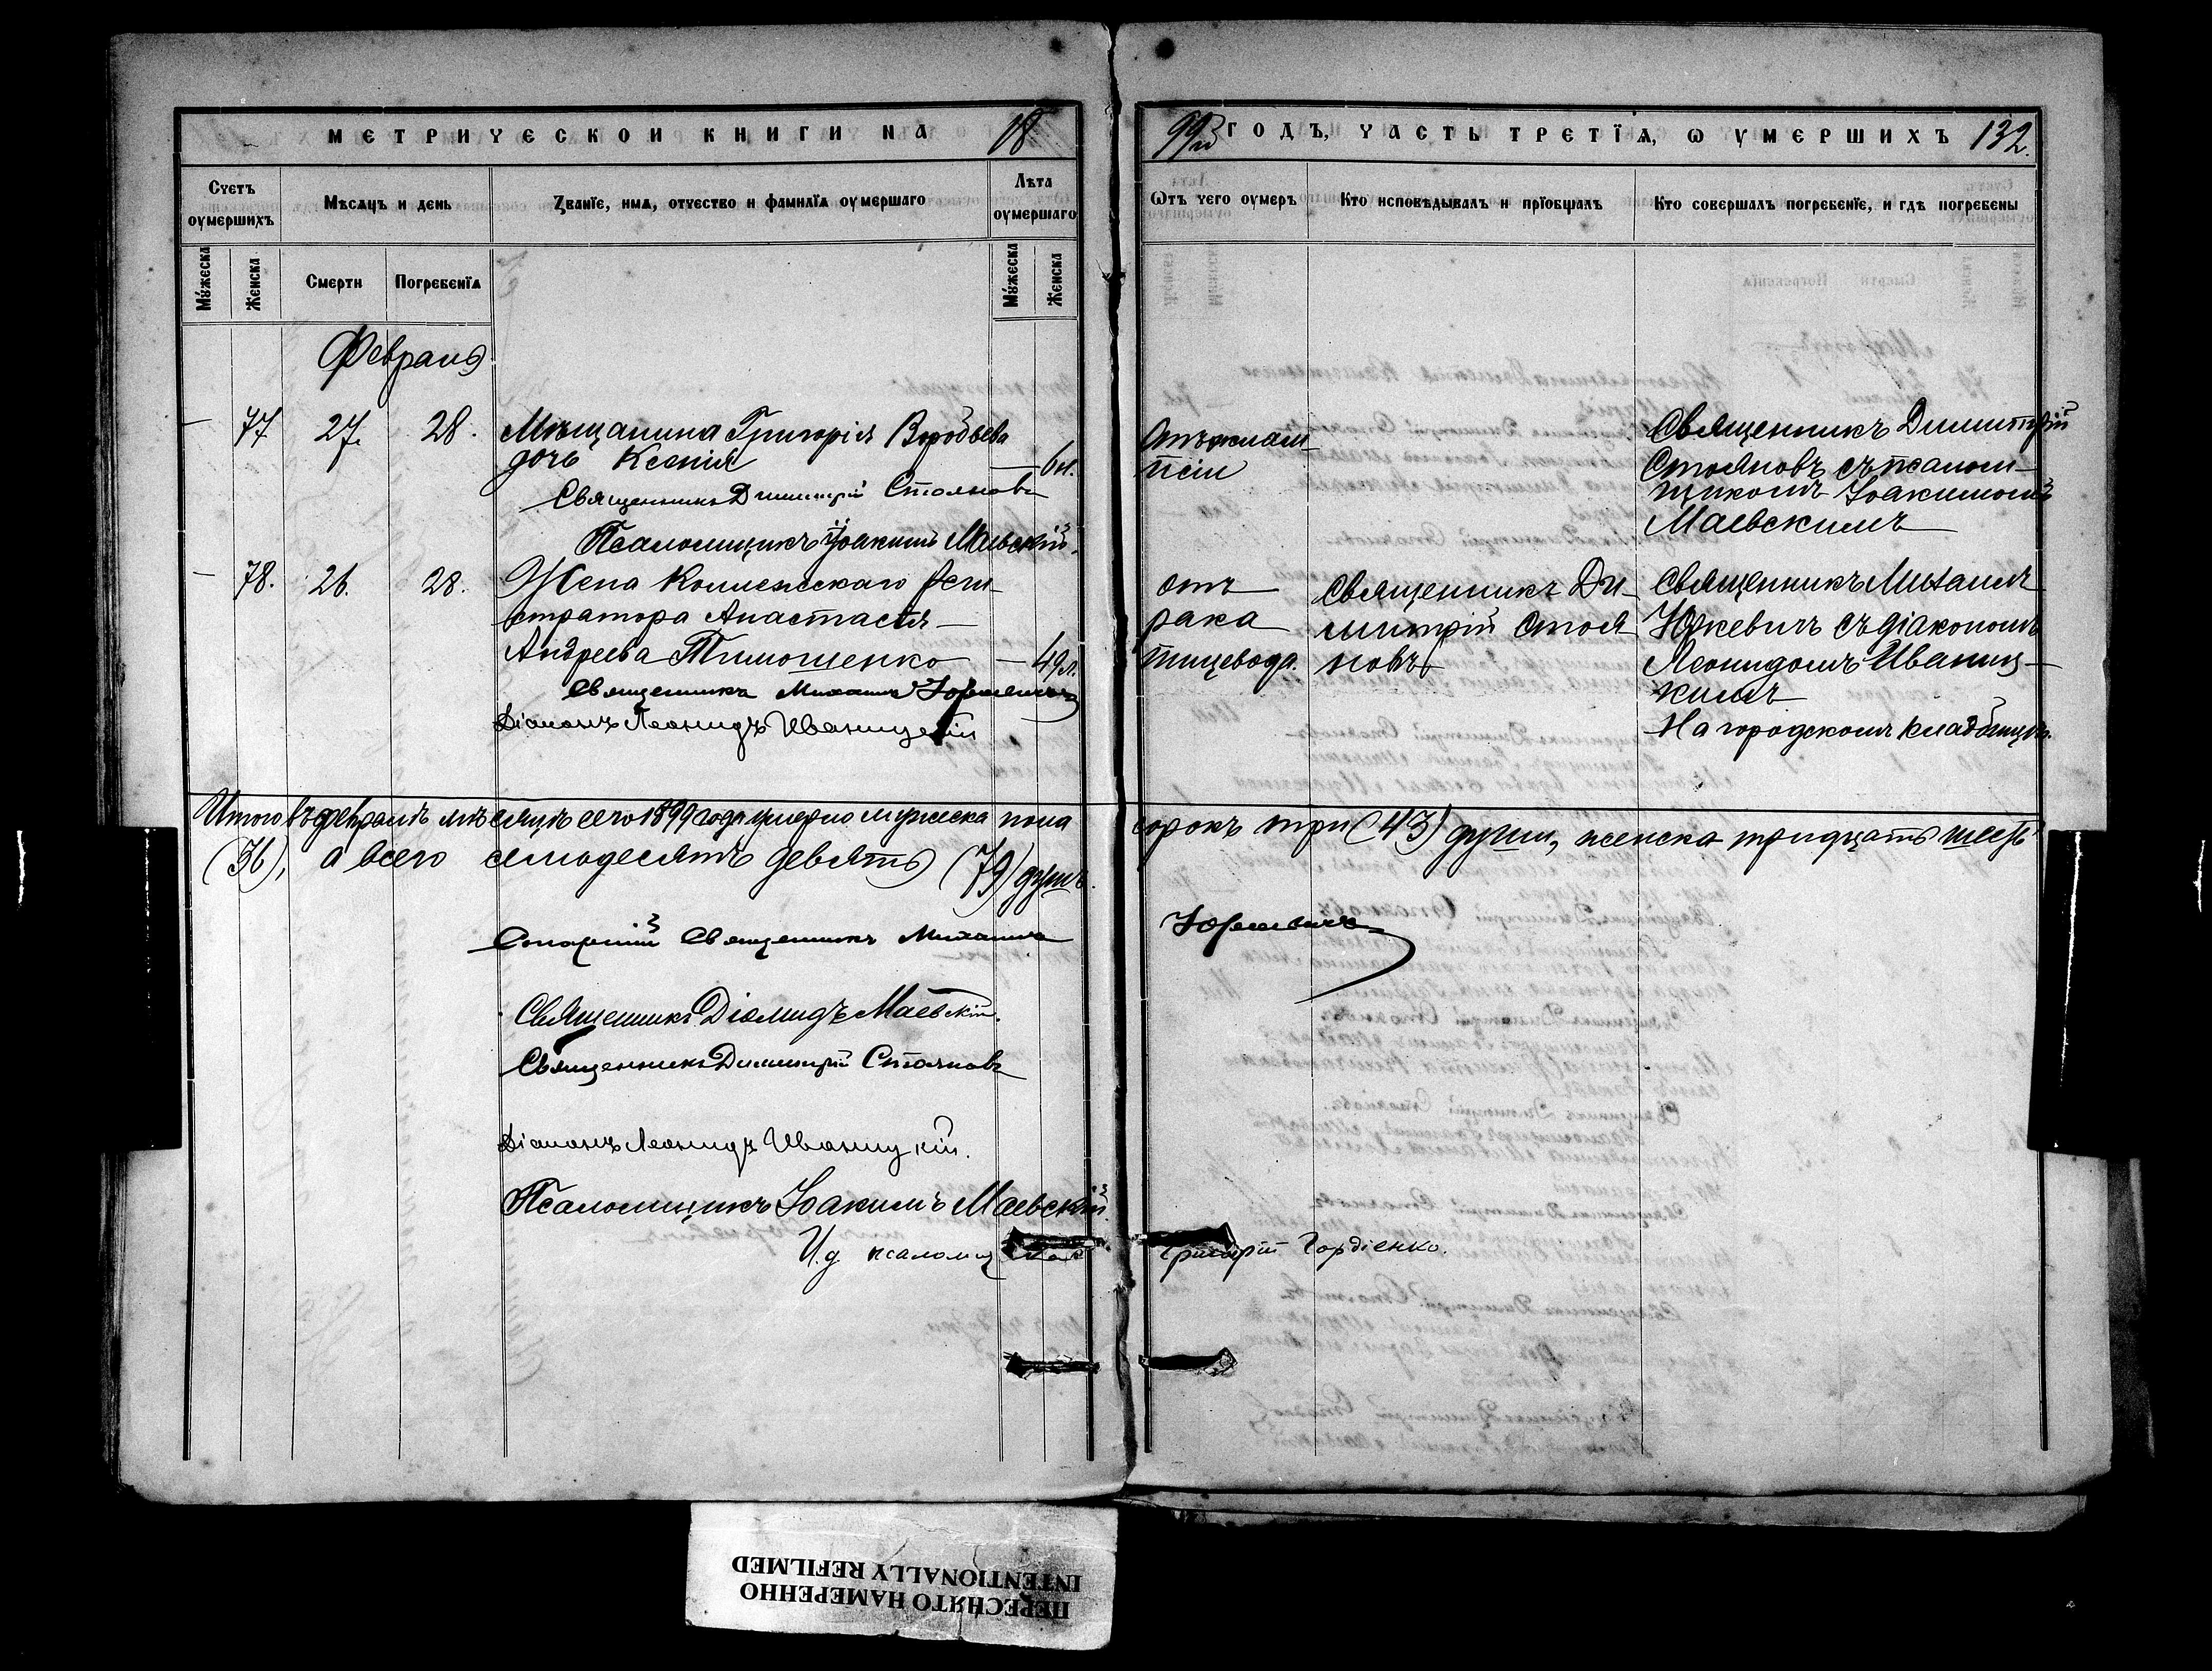 МЕТРИЧЕСКОЙ КНИГИ НА 18
99й ГОДЪ, ЧАСТЬ ТРЕТЇѦ, Ѡ УМЕРШИХЪ 132.
Счетъ оумершихъ
Мѣсѧцъ и день
Званїе, имѧ, отчество и фамилїѧ оумершаго
Лѣта оумершаго
Ѿтъ чего оумеръ
Кто исповѣдывалъ и прїобщалъ
Кто совершалъ погребенїе, и гдѣ погребены
Мꙋжеска
Женска
Смерти
Погребенїѧ
Мꙋжеска
Женска
Февраль
— 77 27. 28. Мѣщанина Григорія Воробьева
дочь Ксенія — 6 н.
Священникъ Димитрій Стояновъ
Псаломщикъ Іоакимъ Маевскій.
Отъ эклам-
псіи
Священникъ Димитрій
Стояновъ съ псалом-
щикомъ Іоакимомъ
Маевскимъ
— 78. 26. 28. Жена Коллежскаго Реги-
стратора Анастасія
Андреева Тимошенко — 49 л.
Священникъ Михаилъ Юркевичъ
Діаконъ Леонидъ Иваницкій
отъ
рака
пищевода.
Священникъ Ди-
митрій Стоя
новъ
Священникъ Михаилъ
Юркевичъ съ діакономъ
Леонидомъ Иваниц-
кимъ
На городскомъ кладбищѣ.
Итого въ февралѣ мѣсяцѣ сего 1899 года умерло мужеска пола сорокъ три (43) души, женска тридцать шесть
(36), а всего семьдесятъ девять (79) душъ.
Священникъ Михаилъ Юркевичъ
Священникъ Діомидъ Маевскій.
Священникъ Димитрій Стояновъ
Діаконъ Леонидъ Иваницкій.
Псаломщикъ Іоакимъ Маевскій
И.д псаломщика Григорій Гордіенко.
ПЕРЕСНЯТО НАМЕРЕННО
INTENTIONALLY REFILMED